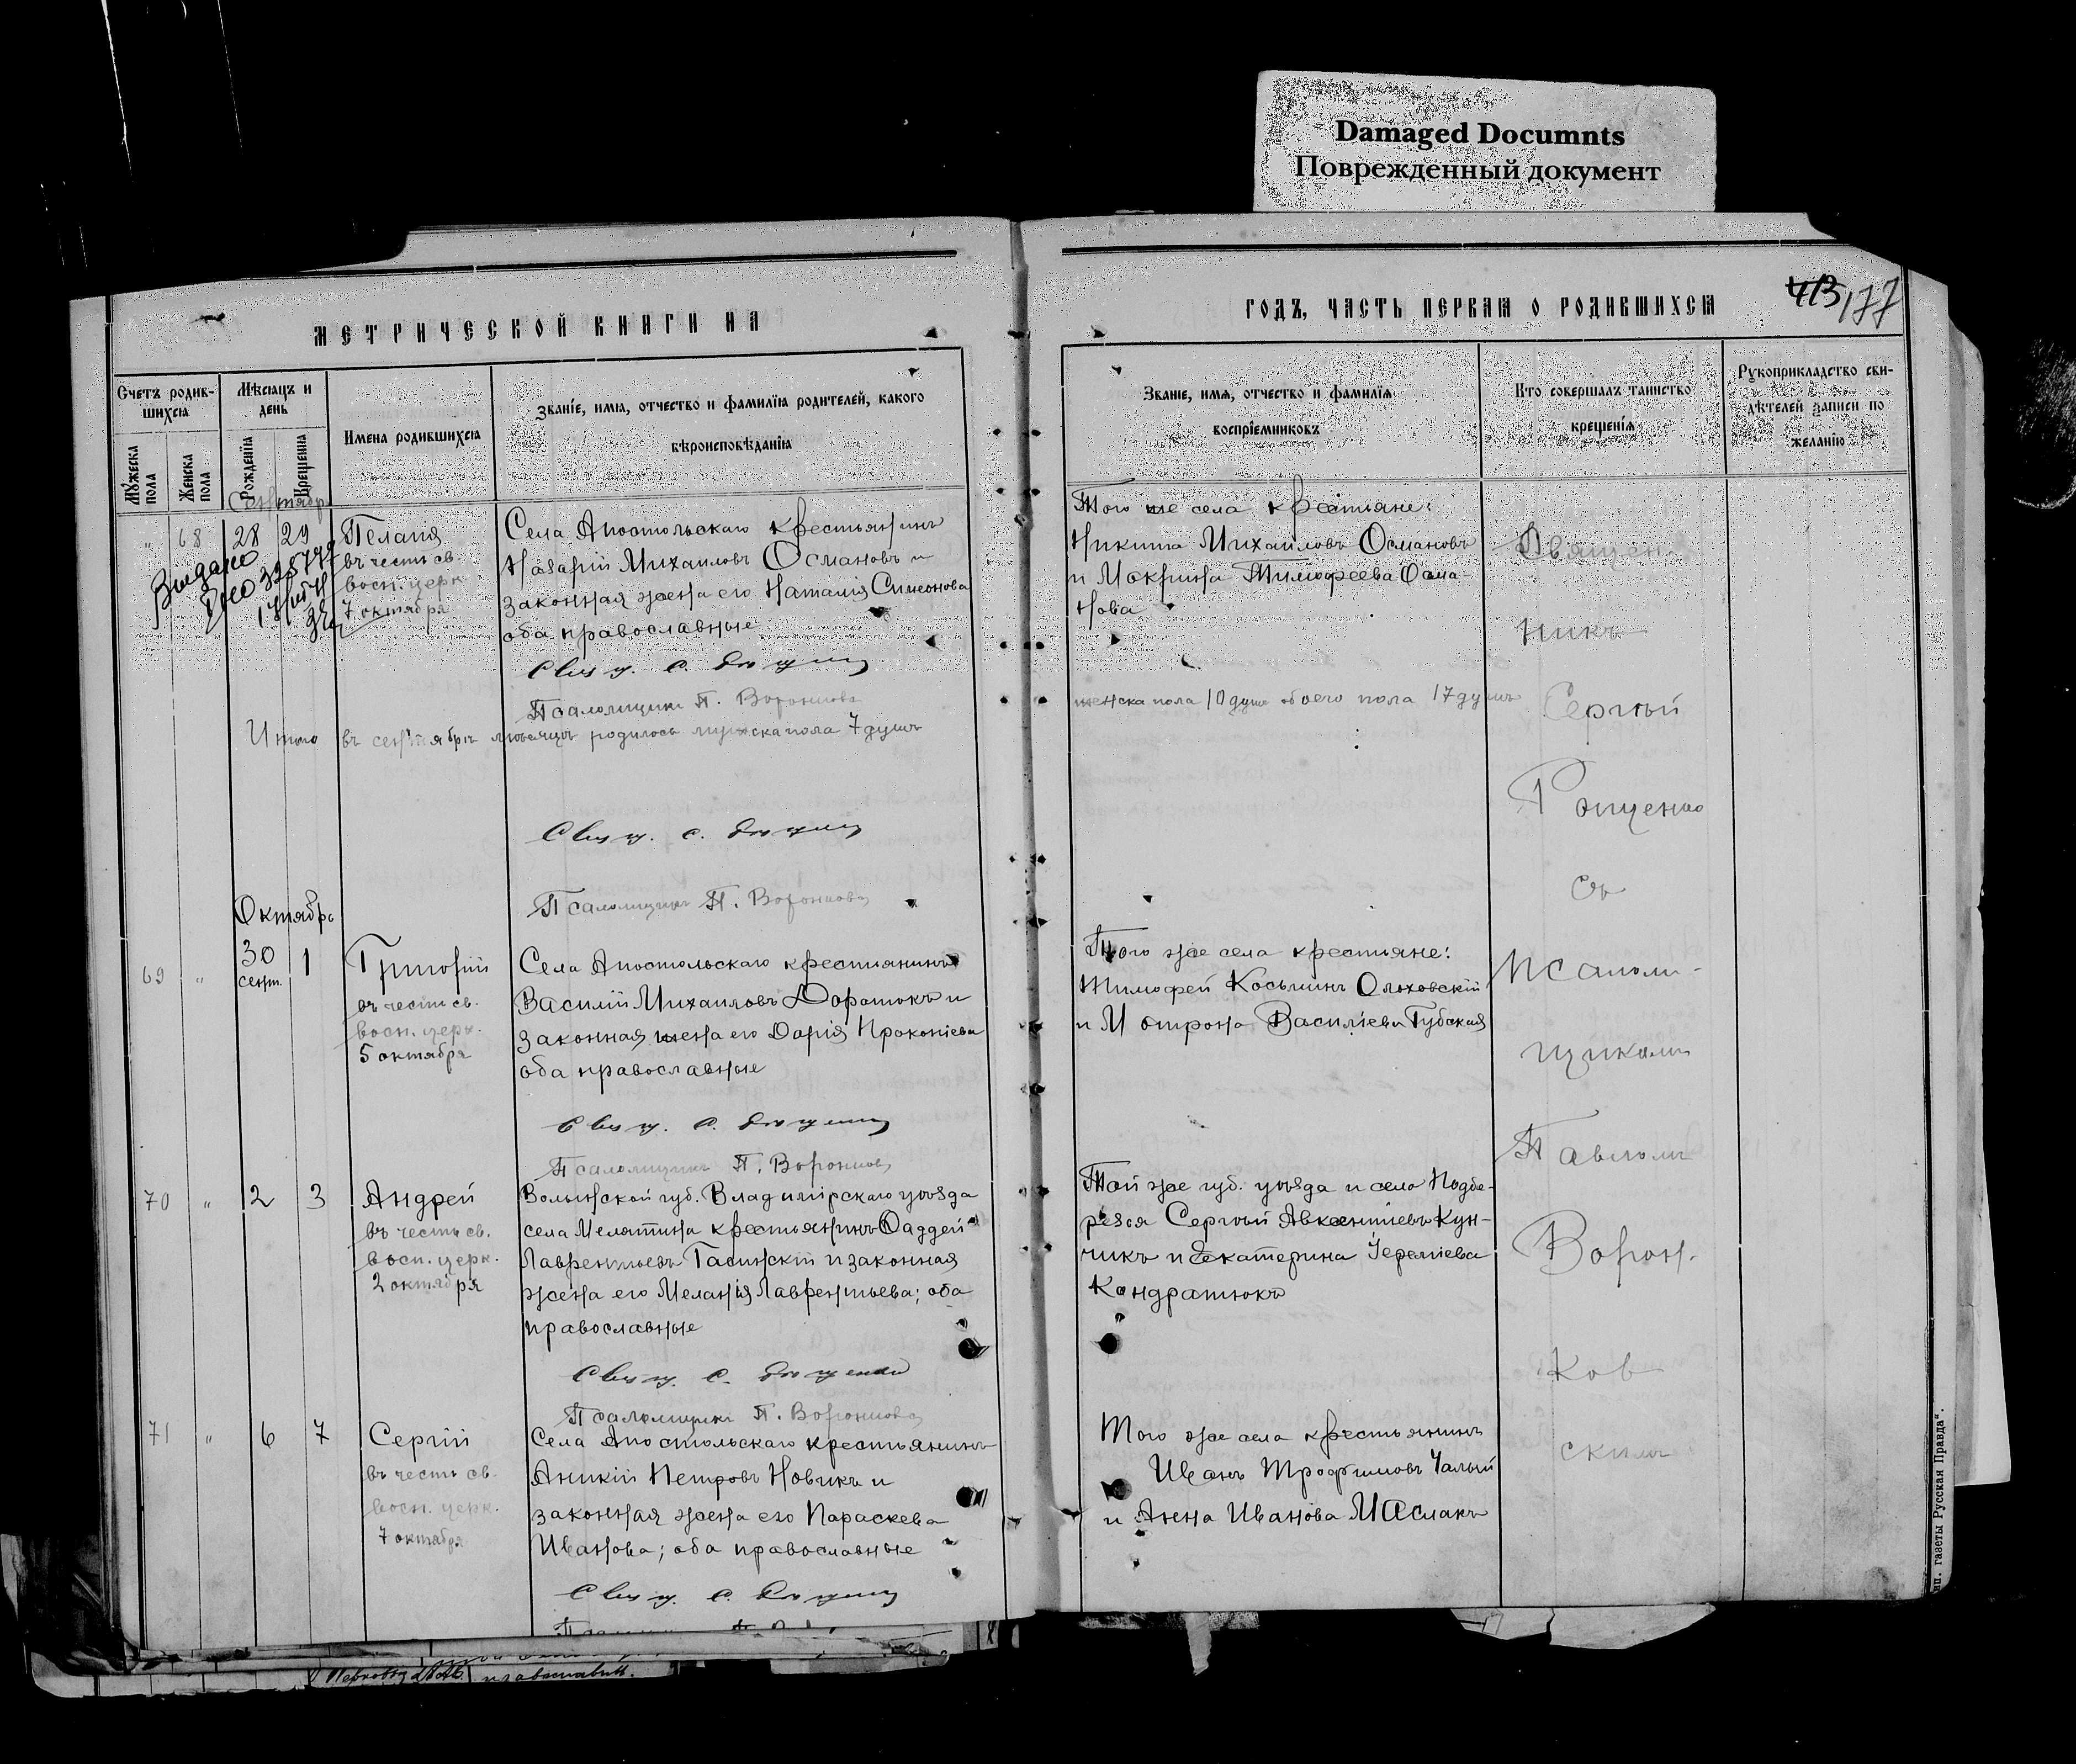 Damaged Documnts
Поврежденный документ
МЕТРИЧЕСКОЙ КНИГИ НА
Счетъ родив-
шихся
Мѣсяцъ и
день
Имена родившихся
Званіе, имя, отчество и фамилія родителей, какого
вѣроисповѣданія
Мужеска
пола
Женска
пола
Рожденія
Крещенія
Сентябрь
„ 68 28 29 Пелагія
въ честь св.
восп. церк.
7 октября
Выдано
Села Апостольскаго крестьянинъ
Назарій Михаиловъ Османовъ и
законная жена его Наталія Симеонова
оба православные
Свящ. С.
Псаломщикъ П.
Итого въ сентябрѣ мѣсяцѣ родилось мужска пола 7 душъ
Свящ. С.
Псаломщикъ П.
Октябрь
69 „ 30
сент. 1 Григорій
въ честь св.
восп. церк.
5 октября
Села Апостольскаго крестьянинъ
Василій Михаиловъ Дорошокъ и
законная жена его Дарія Прокопіева
оба православные
Свящ. С.
Псаломщикъ П.
70 „ 2 3 Андрей
въ честь св.
восп. церк.
2 октября
Волынской губ. Владимірскаго уѣзда
села Мелятина крестьянинъ Фаддей
Лаврентьевъ Гасинскій и законная
жена его Меланія Лаврентьева; оба
православные
Свящ. С.
Псаломщикъ П.
71 „ 6 7 Сергій
въ честь св.
восп. церк.
7 октября
Села Апостольскаго крестьянинъ
Аникій Петровъ Новикъ и
законная жена его Параскева
Иванова; оба православные
Свящ. С.
ГОДЪ, ЧАСТЬ ПЕРВАЯ О РОДИВШИХСЯ
413/177
Званіе, имя, отчество и фамилія
воспріемниковъ
Кто совершалъ таинство
крещенія
Рукоприкладство сви-
дѣтелей записи по
желанію
Того же села крестьяне:
Никита Михаиловъ Османовъ
и Макрина Тимофеева Осма-
нова
женска пола 10 душъ обоего пола 17 душъ
Того же села крестьяне:
Тимофей Косьминъ Ольховскій
и Матрона Василіева Губская
Той же губ. уѣзда и села Подбе-
резья Сергѣй Авксентіевъ Кун-
чикъ и Екатерина Іереміева
Кондратюкъ
Того же села крестьянинъ
Иванъ Трофимовъ Чалый
и Анна Иванова Маслакъ
Священ-
никъ
Сергѣй
съ
псалом-
щикомъ
Павломъ
Ворон-
ков
скимъ
газеты Русская Правда“.